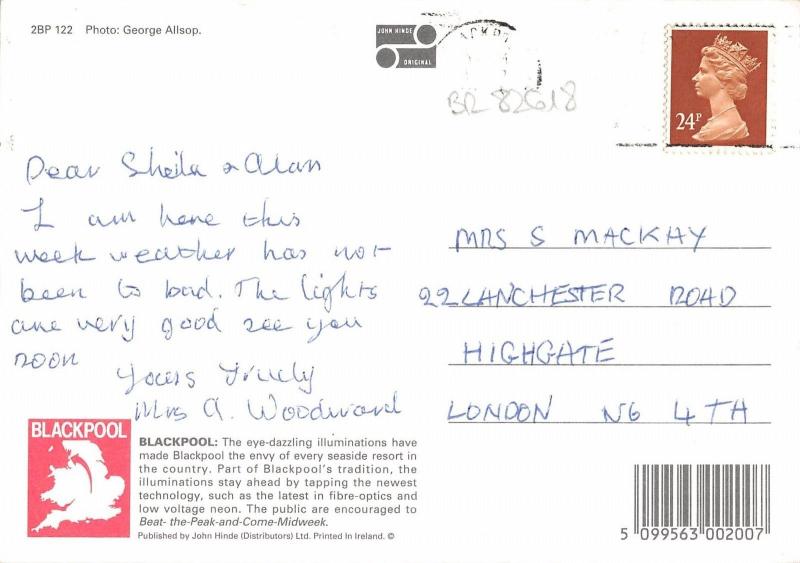 2BP 122 Photo: George Allsop.
JOHN HINDE
ORIGINAL
BR 82618
24P
Dear Sheila & Alan
I am here this
week weather has not
been to bad. The lights
are very good see you
soon
Yours Truely
Mrs A. Woodward
MRS S MACKAY
22 LANCHESTER ROAD
HIGHGATE
LONDON N6 4TH
BLACKPOOL
BLACKPOOL: The eye-dazzling illuminations have
made Blackpool the envy of every seaside resort in
the country. Part of Blackpool's tradition, the
illuminations stay ahead by tapping the newest
technology, such as the latest in fibre-optics and
low voltage neon. The public are encouraged to
Beat- the-Peak-and-Come-Midweek.
Published by John Hinde (Distributors) Ltd. Printed In Ireland. ©
5 099563 002007